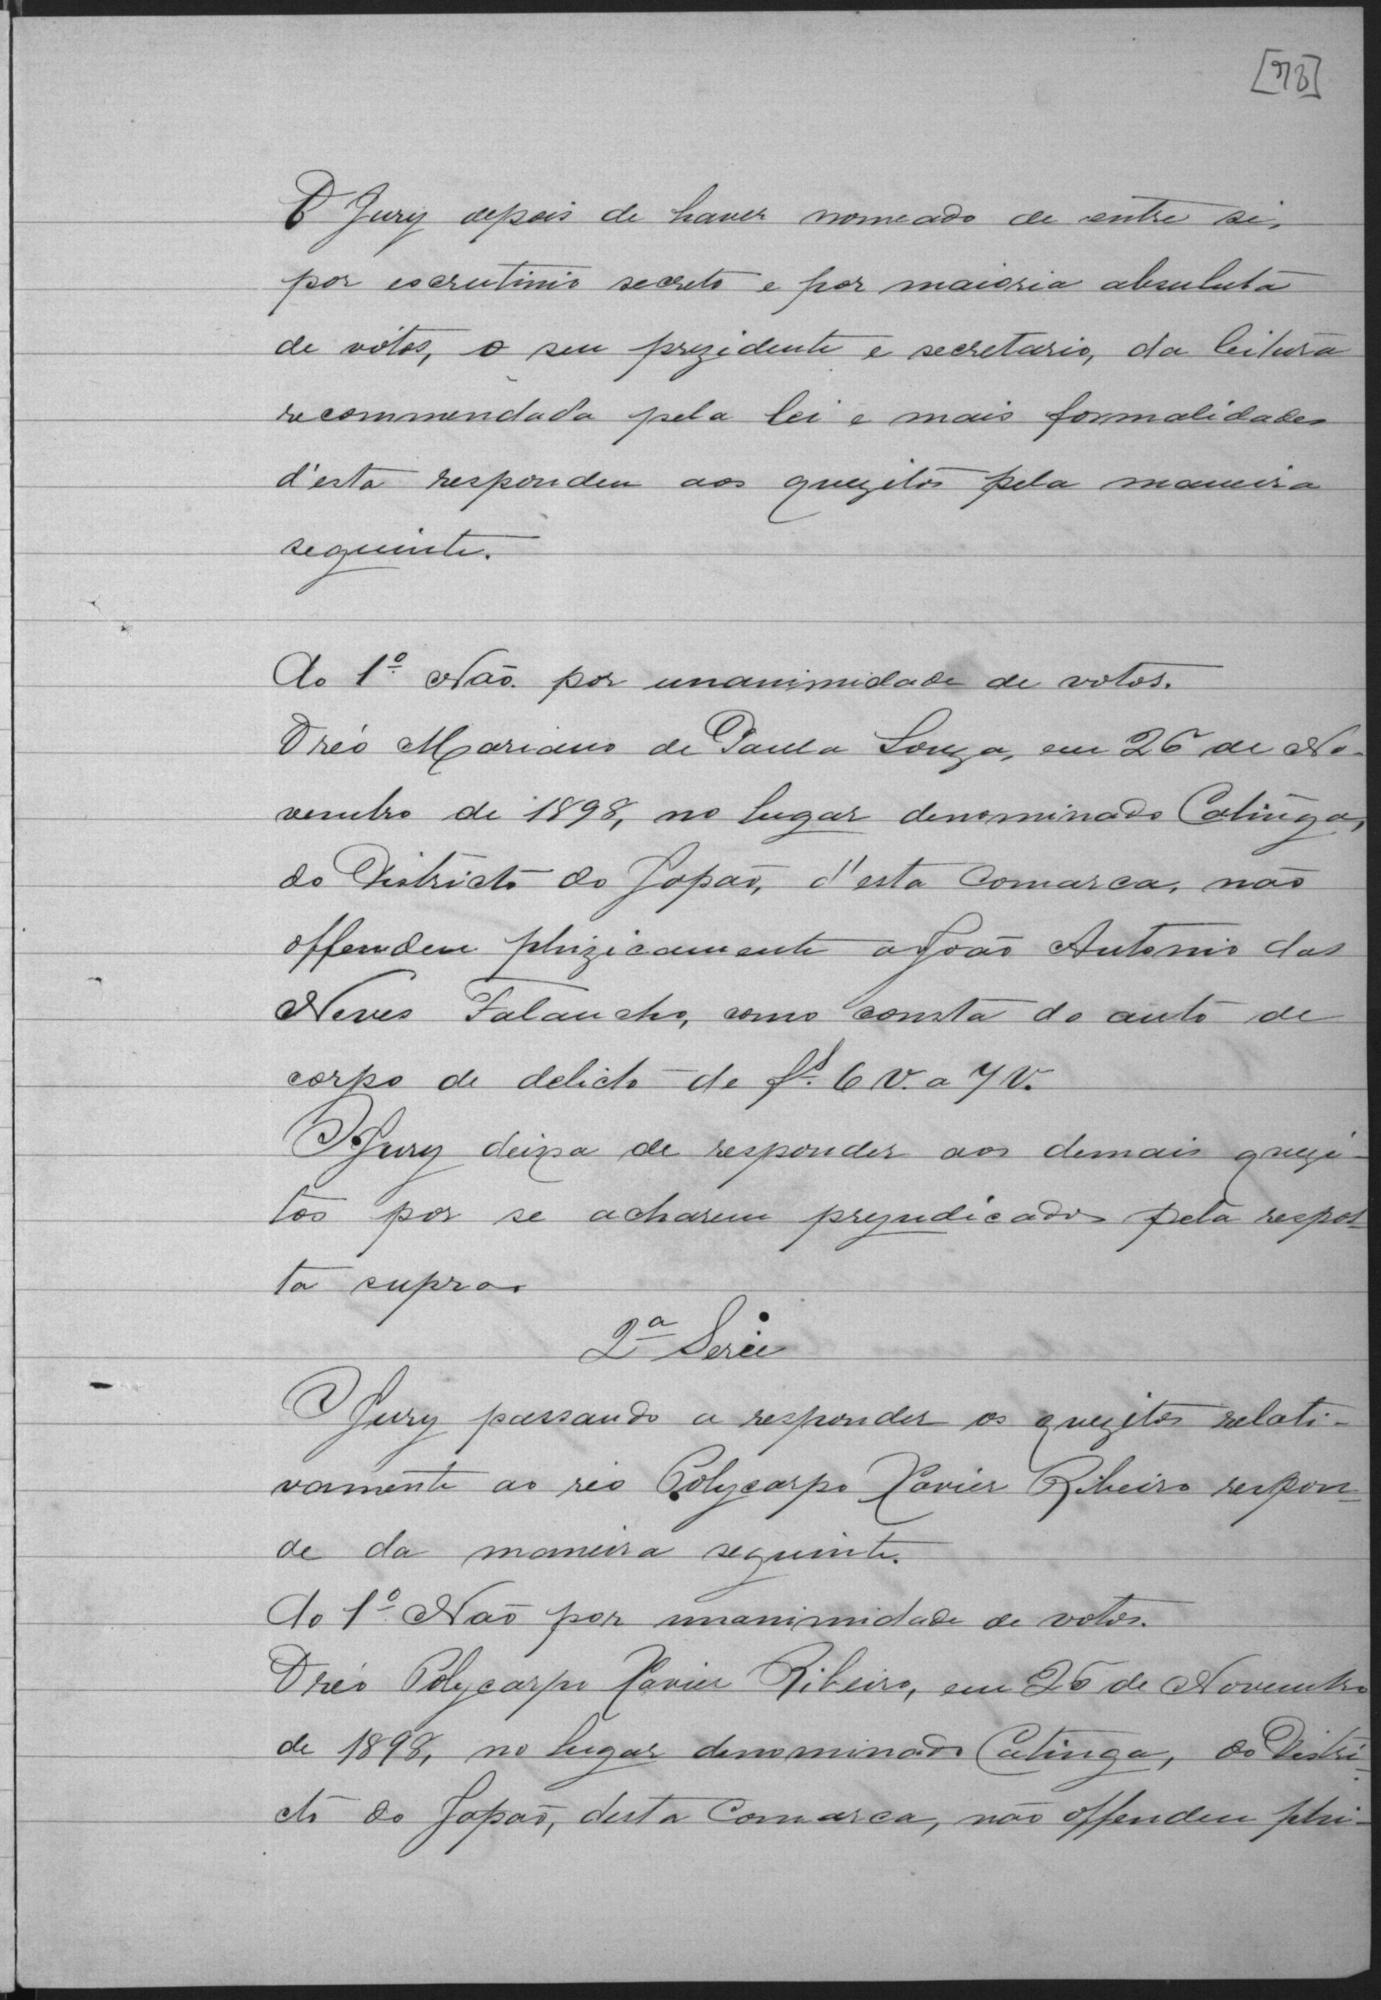 [78]
O Jury depois de haver nomeado de entre si,
por escrutinio secreto e por maioria absuluta
de votos, o seu prezidente e secretario, da leitura
recommendada pela lei e mais formalidades
d'esta respondeu aos quezitos pela maneira
seguinte.
Ao 1º Não. por unanimidade de votos.
O réo Mariano de Paula Souza, em 26 de No-
vembro de 1898, no lugar denominado Catinga,
do Districto do Japão, d'esta Comarca, não
offendeu phizicamente a João Antonio das
Neves Falaucho, como consta do auto de
corpo de delicto de fs. 6 V. a 7 V.
O Jury deixa de responder aos demais quezi-
tos por se acharem prejudicados pela respos-
ta supra.
2ª Serie
O Jury passando a responder os quezitos relati-
vamente ao réo Polycarpo Xavier Ribeiro respon-
de da maneira seguinte.
Ao 1º Não por unanimidade de votos.
O réo Polycarpo Xavier Ribeiro, em 26 de Novembro
de 1898, no lugar denominado Catinga, do Distri-
cto do Japão, desta Comarca, não offendeu phi-